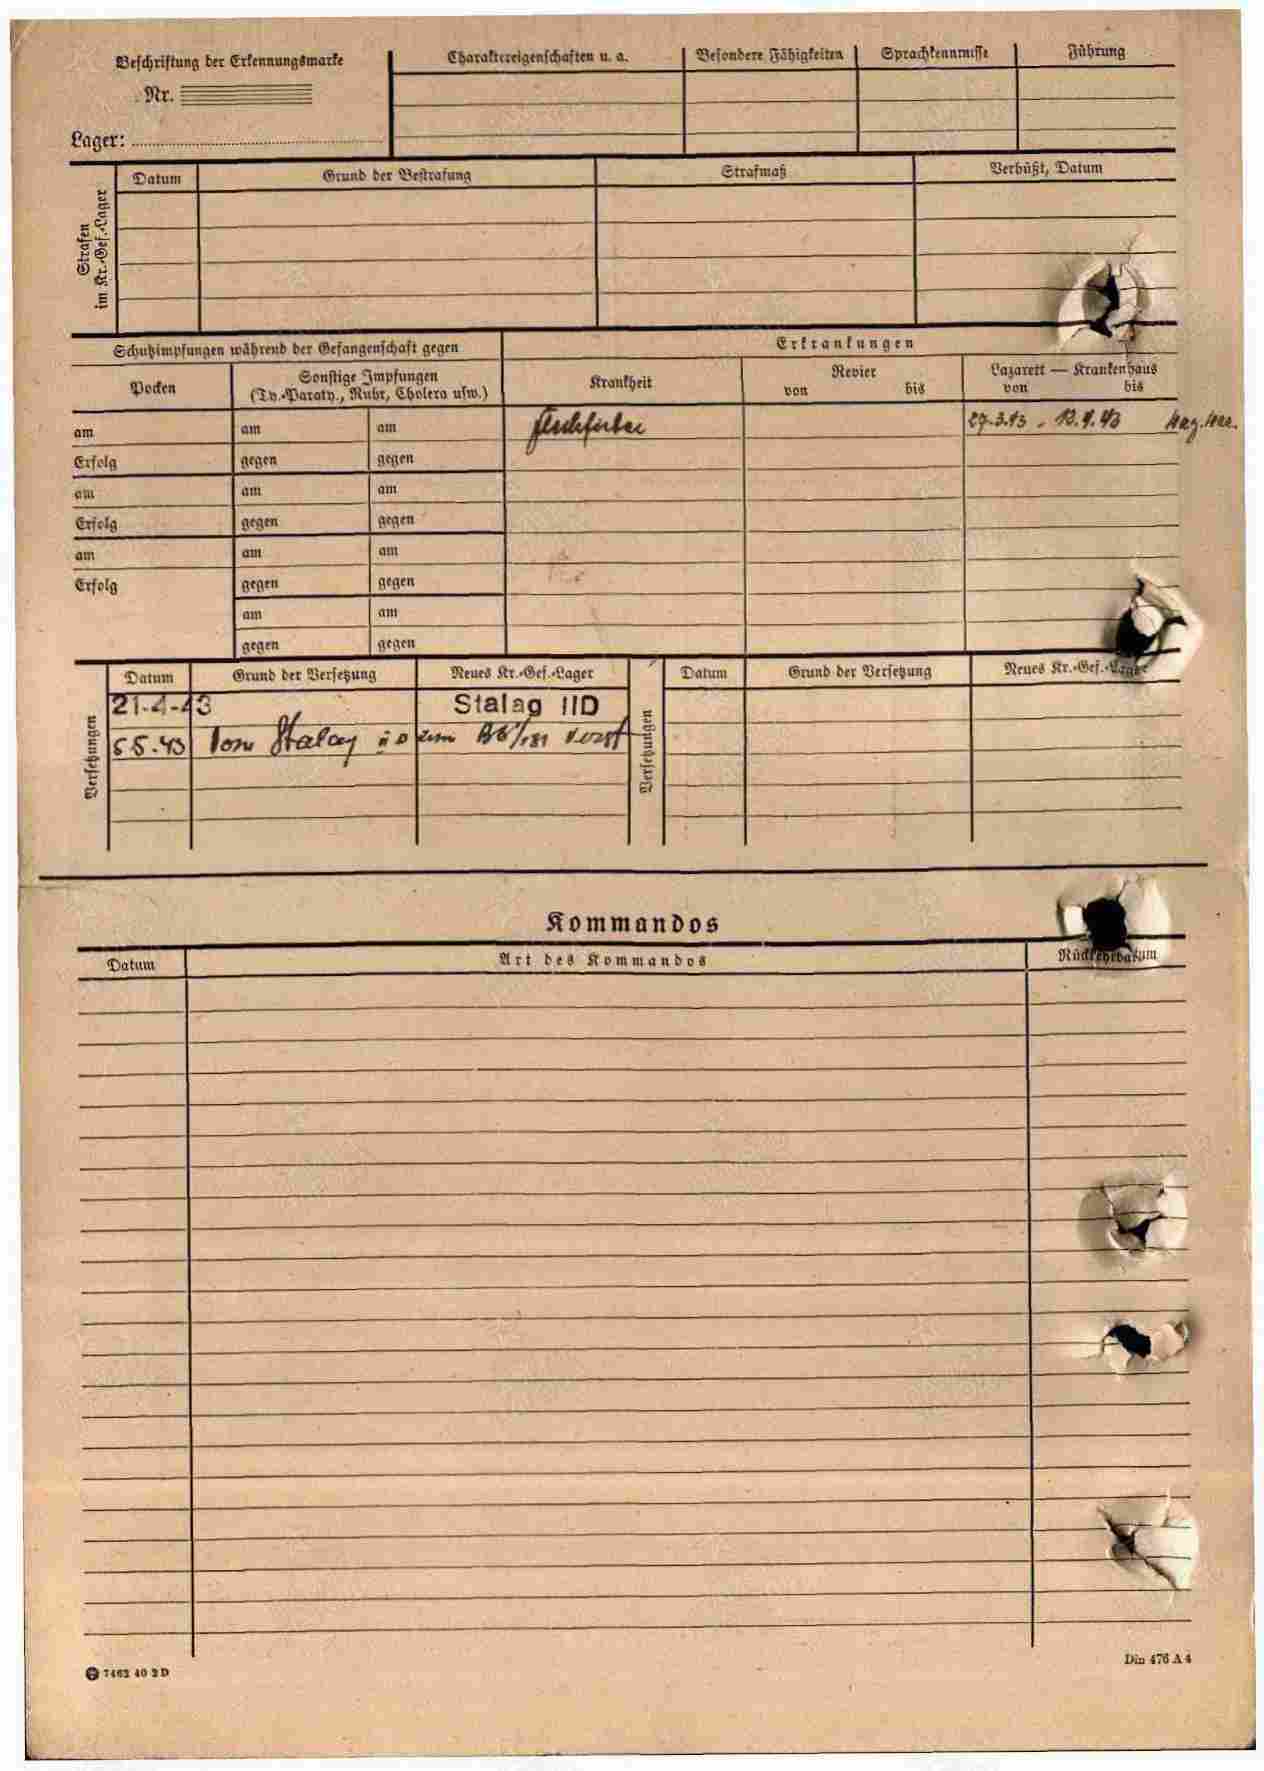 Beschriftung der Erkennungsmarke
Nr.
Lager:
Charaktereigenschaften u. a.
Besondere Fähigkeiten
Sprachkenntnisse
Führung
Strafen
im Kr.-Gef.-Lager
Datum
Grund der Bestrafung
Strafmaß
Verbüßt, Datum
Schutzimpfungen während der Gefangenschaft gegen
Erkrankungen
Pocken
Sonstige Impfungen
(Ty.-Paraty., Ruhr, Cholera usw.)
Krankheit
Revier
von bis
Lazarett — Krankenhaus
von bis
am am am
27.3.43 - 13.4.43
Erfolg gegen gegen
am am am
Erfolg gegen gegen
am am am
Erfolg gegen gegen
am am
gegen gegen
Versetzungen
Datum Grund der Versetzung Neues Kr.-Gef.-Lager
21-4-43 Stalag IID
5.5.43 Vom Stalag II D zum
Versetzungen
Datum Grund der Versetzung Neues Kr.-Gef.-Lager
Kommandos
Datum Art des Kommandos Rückkehrdatum
7462 40 2 D
Din 476 A 4